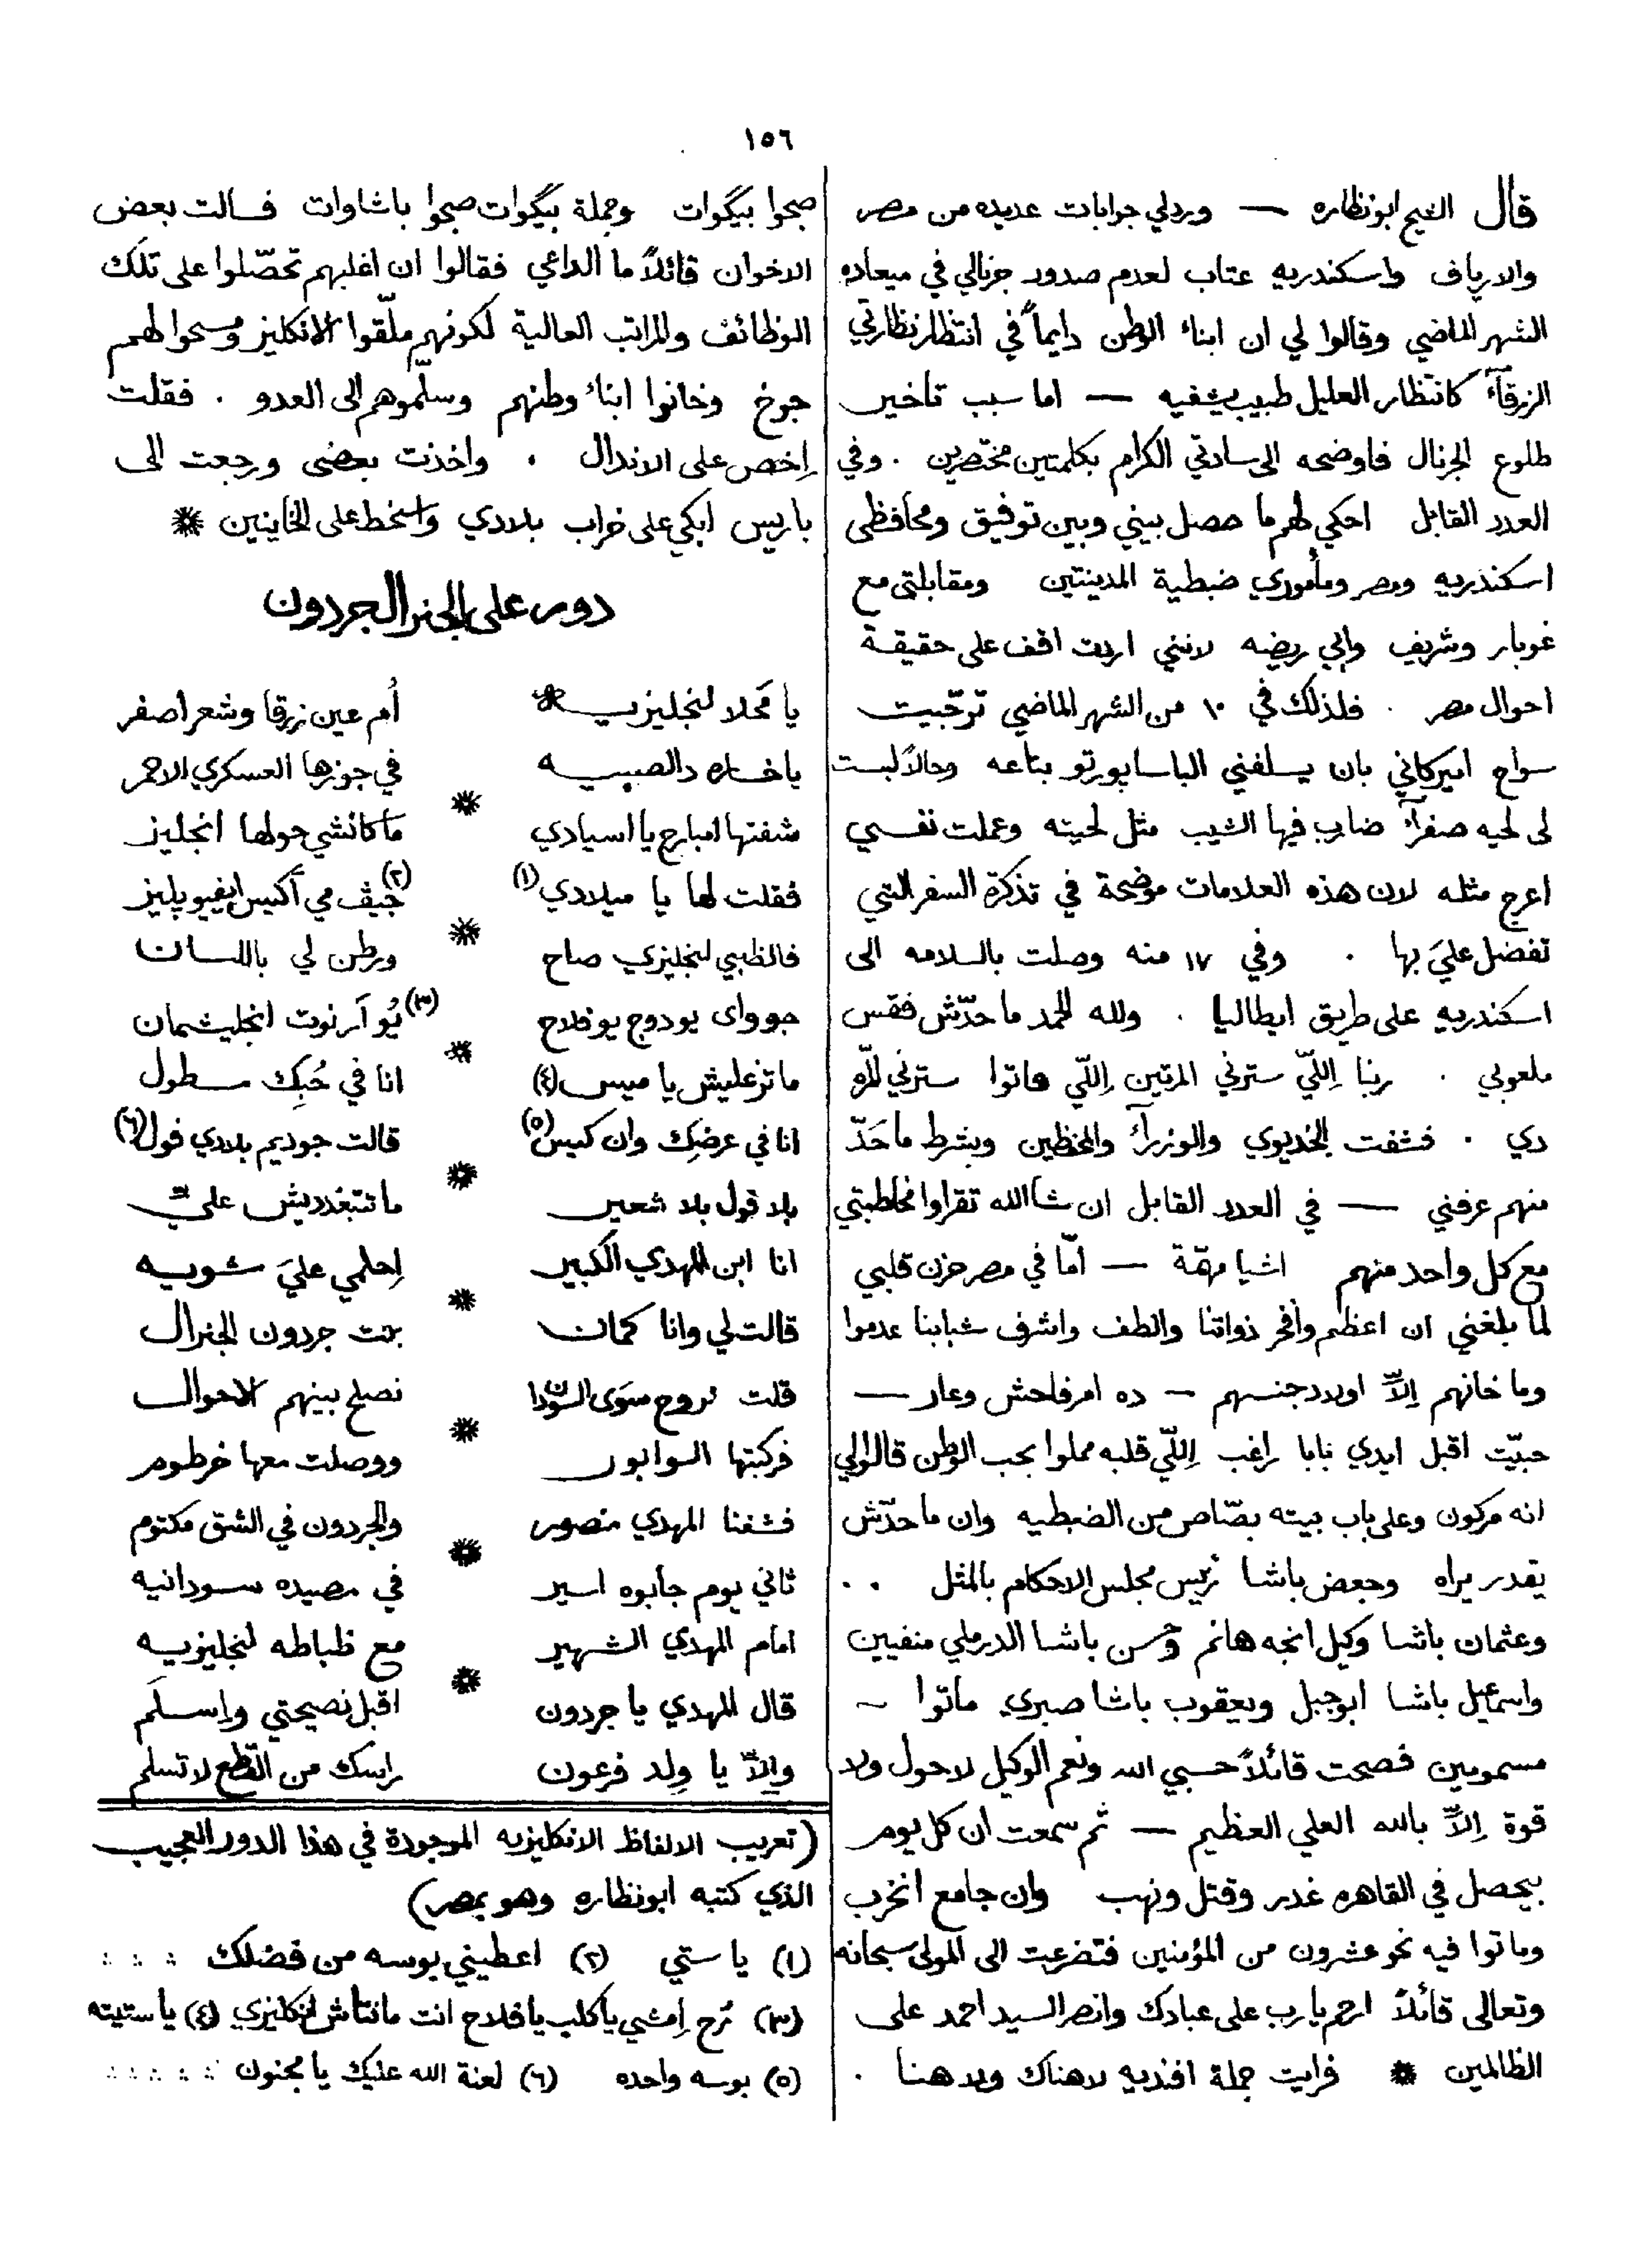 ١٥٦
قال الشيخ ابو نظاره — ورد لي جوابات عديده من مصر
والارياف واسكندريه عتاب لعدم صدور جرنالي في ميعاده
الشهر الماضي وقالوا لي ان ابناء الوطن دايماً في انتظار نظارتي
الزرقآء كانتظار العليل طبيب يشفيه — اما سبب تاخير
طلوع الجرنال فاوضحه الى سادتي الكرام بكلمتين مختصرين . وفي
العدد القابل احكي لهم ما حصل بيني وبين توفيق ومحافظى
اسكندريه ومصر ومأموري ضبطية المدينتين ومقابلتى مع
غوبار وشريف وابي ريضه لانني اردت اقف على حقيقة
احوال مصر . فلذلك في ١٠ من الشهر الماضي ترجّيت
سواح اميركاني بان يسلفني الباسابورتو بتاعه وحالاً لبست
لى لحيه صفرآء ضارب فيها الشيب مثل لحيته وعملت نفسي
اعرج مثله لان هذه العلامات موضحة في تذكرة السفر التي
تفضل عليَ بها . وفي ١٧ منه وصلت بالسلامه الى
اسكندريه على طريق ايطاليا . ولله الحمد ما حدّش فقس
ملعوبي . ربنا اِللّي سترني المرتين اِللّي فاتوا سترني المرّه
دي . فشفت الخديوي والوزرآء والمحظين وبشرط ما حَدّ
منهم عرفني — في العدد القابل ان شاالله تقراوا مخاطبتي
مع كل واحد منهم اشيا مهمّة — امّا في مصر حزن قلبي
لما بلغني ان اعظم وافخر ذواتنا والطف واشرف شبابنا عدموا
وما خانهم اِلاّ اولاد جنسهم — ده امر فاحش وعار —
حبيّت اقبل ايدي بابا راغب اِللّي قلبه مملوا بحب الوطن قالوا لي
انه مركون وعلى باب بيته بصّاص من الضبطيه وان ما حدّش
يقدر يراه وجعض باشا رئيس مجلس الاحكام بالمثل . .
وعثمان باشا وكيل انجه هانم وحسن باشا الدرملي منفيين
واسماعيل باشا ابو جبل ويعقوب باشا صبري ماتوا —
مسمومين فصحت قائلاً حسبي الله ونعم الوكيل لا حول ولا
قوة اِلاّ بالله العلي العظيم — ثم سمعت ان كل يوم
بيحصل في القاهره غدر وقتل ونهب وان جامع انخرب
وماتوا فيه نحو عشرون من المؤمنين فتضرعت الى المولى سبحانه
وتعالى قائلاً ارحم يا رب على عبادك وانصر السيد احمد على
الظالمين * فرايت جملة افنديه لا هناك ولا هنا .
صبحوا بيگوات وجملة بيگوات صبحوا باشاوات فسالت بعض
الاخوان قائلاً ما الداعي فقالوا ان اغلبهم تحصّلوا على تلك
الوظائف والمراتب العالية لكونهم ملّقوا الانكليز ومسحوا لهم
جوخ وخانوا ابناء وطنهم وسلّموهم الى العدو . فقلت
اِخص على الاندال . واخذت بعضى ورجعت الى
باريس ابكي على خراب بلادي واسخط على الخاينين *
دور على الجنرال جردون
يا محَلا لنجليزيه * اُم عين زرقا وشعر اصفر
يا خساره دالصبيه في جوزها العسكري الاحمر
*
شفتها امبارح يا اسيادي ما كانشي حولها انجليز
فقلت لها يا ميلادي (١) جيڤ مي أكيس ايفيو پليز (٢)
*
فالظبي لنجليزي صاح ورطن لي باللسان
جوواى يو دوج يو فلاح (٣) يُو آر نوت انجليشمان
*
ما تزعليش يا ميس (٤) انا في حُبِك مسطول
انا في عرضِك وان كيس (٥) قالت جوديم بلادي فول (٦)
*
بلا فول بلا شعير ما تتبغدديش عليّ
انا ابن المهدي الكبير اِحلمي عليَ شويه
*
قالت لي وانا كمان بنت جردون الجنرال
قلت نروح سَوَى السودان نصلح بينهم الاحوال
*
فركبتها الوابور ووصلت معها خرطوم
فشفنا المهدي منصور والجردون في الشق مكتوم
*
ثاني يوم جابوه اسير في مصيده سودانيه
امام المهدي الشهير مع ظباطه لنجليزيه
*
قال المهدي يا جردون اقبل نصيحتي واِسلَم
واِلاّ يا وِلد فرعون راسك من القطع لا تسلم
(تعريب الالفاظ الانكليزيه الموجودة في هذا الدور العجيب
الذي كتبه ابو نظاره وهو بمصر)
(١) يا ستي (٢) اعطيني بوسه من فضلك
(٣) رُح اِمشي يا كلب يا فلاح انت مانتاش انكليزي (٤) يا ستيته
(٥) بوسه واحده (٦) لعنة الله عليك يا مجنون